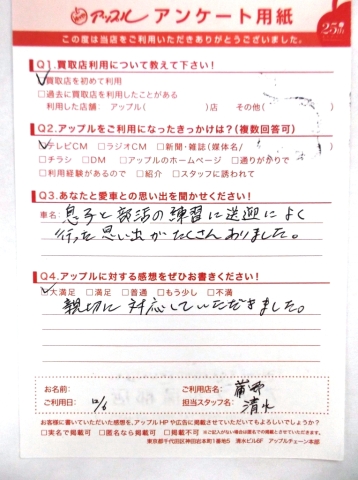 アップル アンケート用紙
25th
この度は当店をご利用いただきありがとうございました。
Q1.買取店利用について教えて下さい!
☑買取店を初めて利用
□過去に買取店を利用したことがある
利用した店舗： アップル( )店 その他( )
Q2.アップルをご利用になったきっかけは?(複数回答可)
☑テレビCM □ラジオCM □新聞・雑誌(媒体名/
□チラシ □DM □アップルのホームページ □通りがかりで
□利用経験があるので □紹介 □スタッフに誘われて
Q3.あなたと愛車との思い出を聞かせください!
車名: 息子と部活の練習に送迎によく
行った思い出がたくさんありました。
Q4.アップルに対する感想をぜひお書きください!
☑大満足 □満足 □普通 □もう少し □不満
親切に対応していただきました。
お名前: ご利用店名:
ご利用日: 12/6 担当スタッフ名: 清水
お客様に書いていただいた感想を、アップルHPや広告に掲載させていただいてもよろしいでしょうか?
□実名で掲載可 □匿名なら掲載可 □掲載不可 ※ご記入がない場合は匿名での掲載とさせていただきます。
東京都千代田区神田岩本町1番地5 清水ビル8F アップルチェーン本部